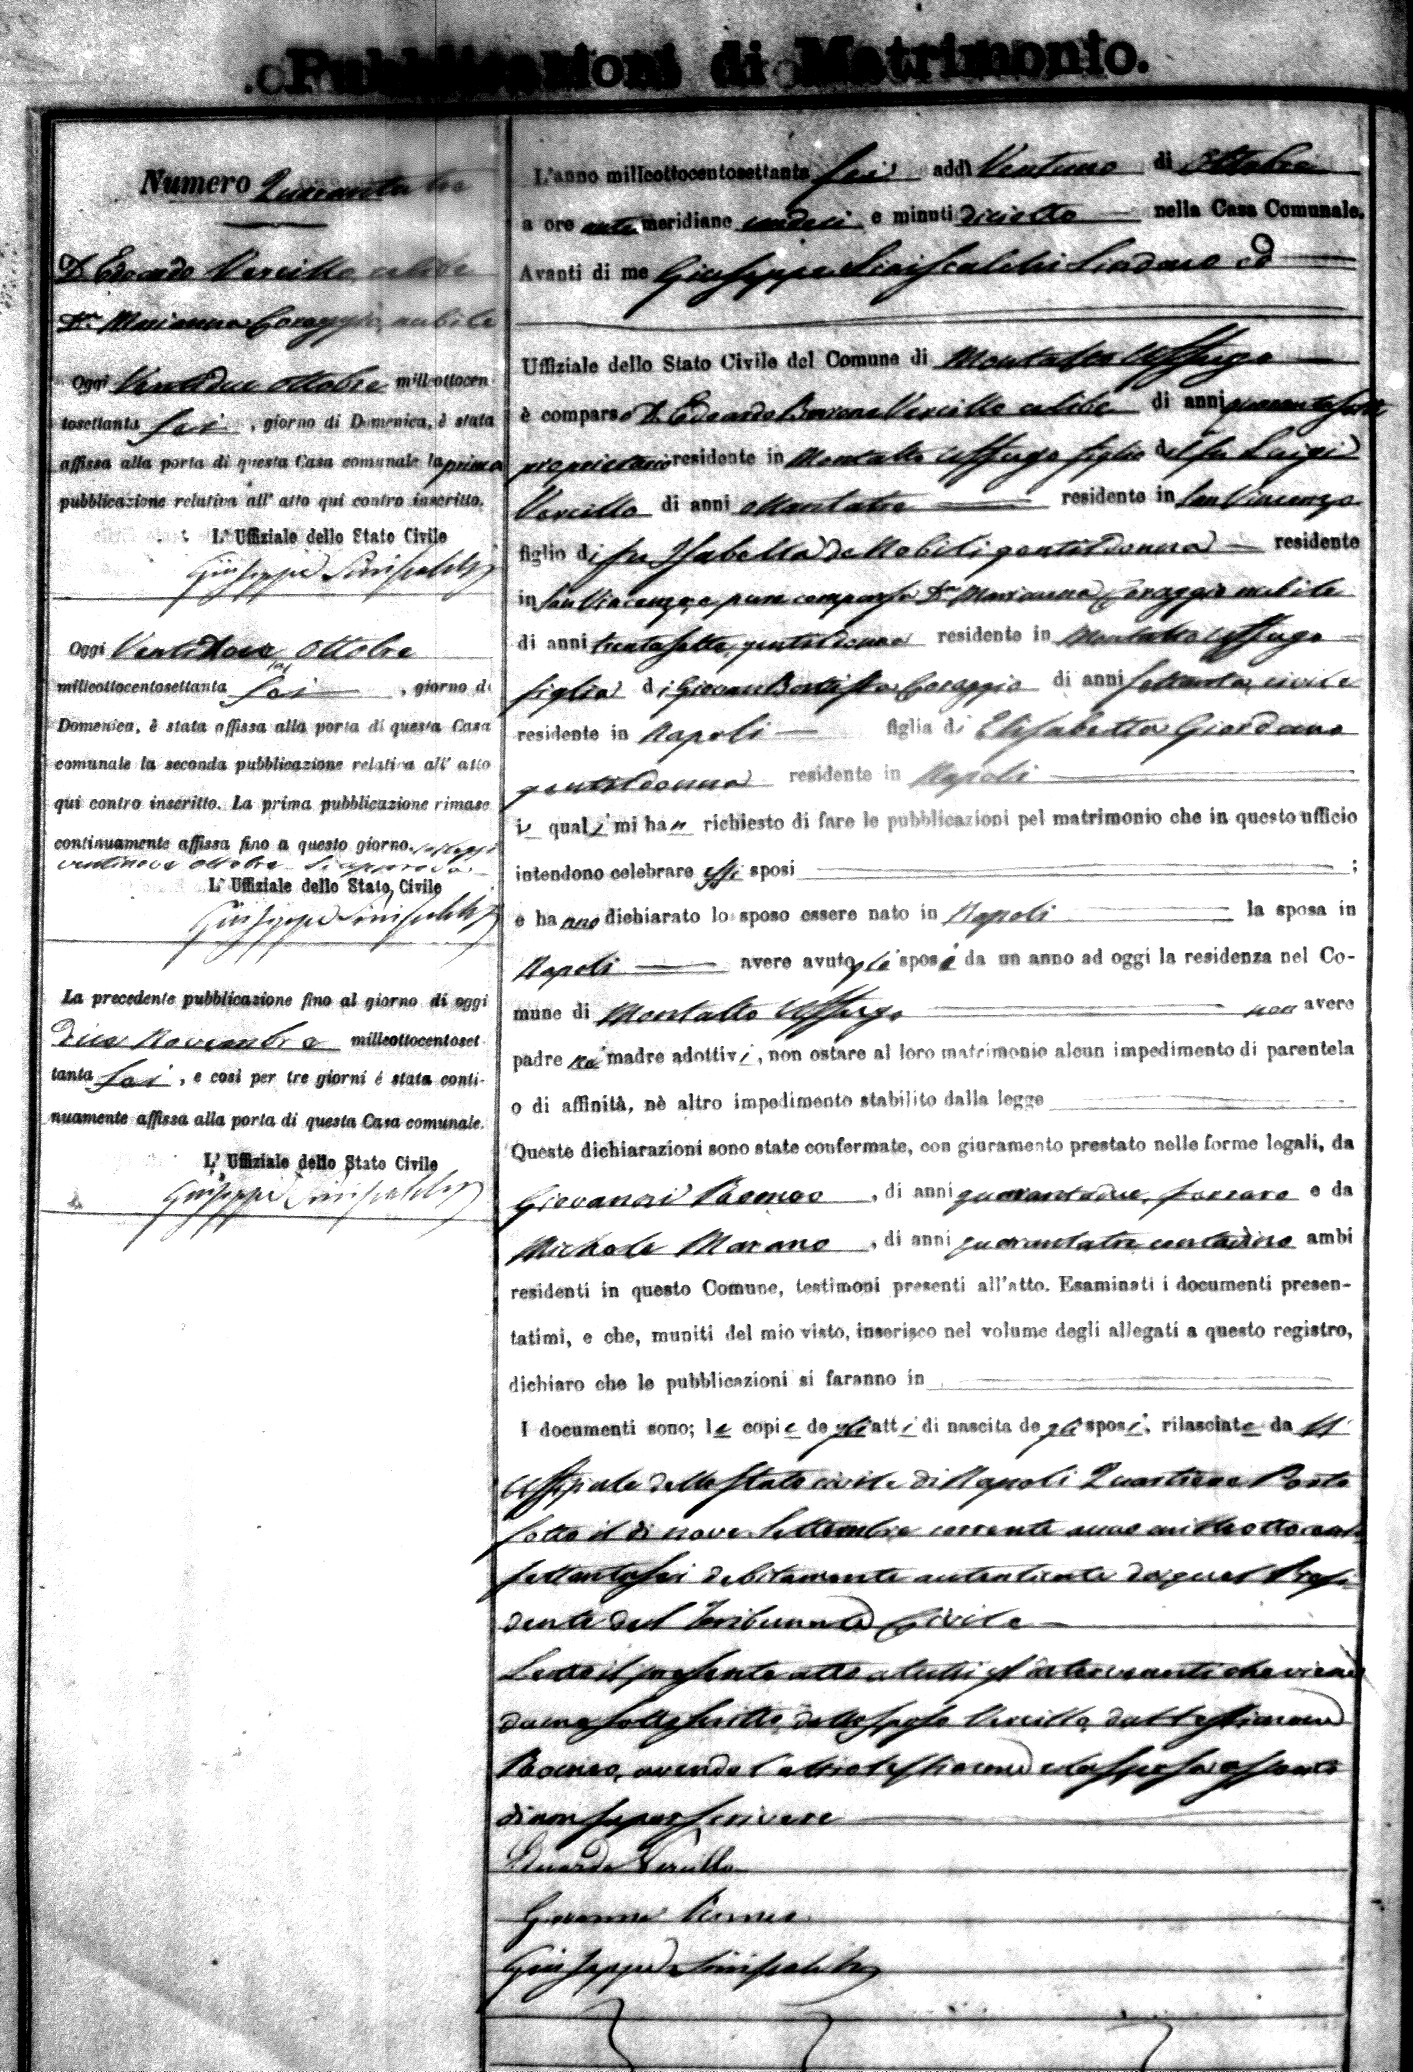 Pubblicazioni di Matrimonio.
Numero Quarantatre
D. Edoardo Vercillo, celibe
D.na Marianna Coraggio, nubile
Oggi Ventidue Ottobre milleottocen-
tosettanta sei, giorno di Domenica, è stata
affissa alla porta di questa Casa comunale la prima
pubblicazione relativa all' atto qui contro inscritto.
L' Uffiziale dello Stato Civile
Giuseppe Siniscalchi
Oggi Ventinove Ottobre
milleottocentosettanta sei, giorno di
Domenica, è stata affissa alla porta di questa Casa
comunale la seconda pubblicazione relativa all' atto
qui contro inscritto. La prima pubblicazione rimase
continuamente affissa fino a questo giorno.
ventinove ottobre si approva
L' Uffiziale dello Stato Civile
Giuseppe Siniscalchi
La precedente pubblicazione fino al giorno di oggi
Novembre milleottocentoset-
tanta sei, e così per tre giorni è stata conti-
nuamente affissa alla porta di questa Casa comunale.
L' Uffiziale dello Stato Civile
Giuseppe Siniscalchi
L'anno milleottocentosettanta sei addì Ventuno di Ottobre
a ore ante meridiane undeci e minuti diciotto nella Casa Comunale.
Avanti di me Giuseppe Siniscalchi Sindaco ed
Uffiziale dello Stato Civile del Comune di Montalto Uffugo
è comparso D. Edoardo Barone Vercillo celibe di anni quarantasette
proprietario residente in Montalto Uffugo figlio del fu Luigi
Vercillo di anni ottantatre residente in San Vincenzo
figlio di fu Isabella de Nobili gentildonna residente
in San Vincenzo, e pure comparsa D.na Marianna Coraggio nubile
di anni trentasette, gentildonna residente in Montalto Uffugo
figlia di Giovan Battista Coraggio di anni settanta, civile
residente in Napoli figlia di Elisabetta Giordano
gentildonna residente in Napoli
i quali mi han richiesto di fare le pubblicazioni pel matrimonio che in questo ufficio
intendono celebrare essi sposi ;
e hanno dichiarato lo sposo essere nato in Napoli la sposa in
Napoli avere avuto gli sposi da un anno ad oggi la residenza nel Co-
mune di Montalto Uffugo non avere
padre nè madre adottivi, non ostare al loro matrimonio alcun impedimento di parentela
o di affinità, nè altro impedimento stabilito dalla legge
Queste dichiarazioni sono state confermate, con giuramento prestato nelle forme legali, da
Giovanni Romeo, di anni quarantadue, e da
Michele Marano, di anni quarantatre contadino ambi
residenti in questo Comune, testimoni presenti all'atto. Esaminati i documenti presen-
tatimi, e che, muniti del mio visto, inserisco nel volume degli allegati a questo registro,
dichiaro che le pubblicazioni si faranno in
I documenti sono; le copie degli atti di nascita degli sposi, rilasciate da ll'
Uffiziale dello Stato civile di Napoli Quartiere Porto
sotto il dì nove Settembre corrente anno milleottocento
settantasei debitamente autenticate da quel Presi
dente del Tribunale Civile
Letto il presente atto a tutti gl'intervenuti che viene
da me sottoscritto, dallo sposo Vercillo, dal testimone
Romeo, avendo l'altro testimone e la sposa assento
di non saper scrivere
Eduardo Vercillo
Giovanni Romeo
Giuseppe Siniscalchi